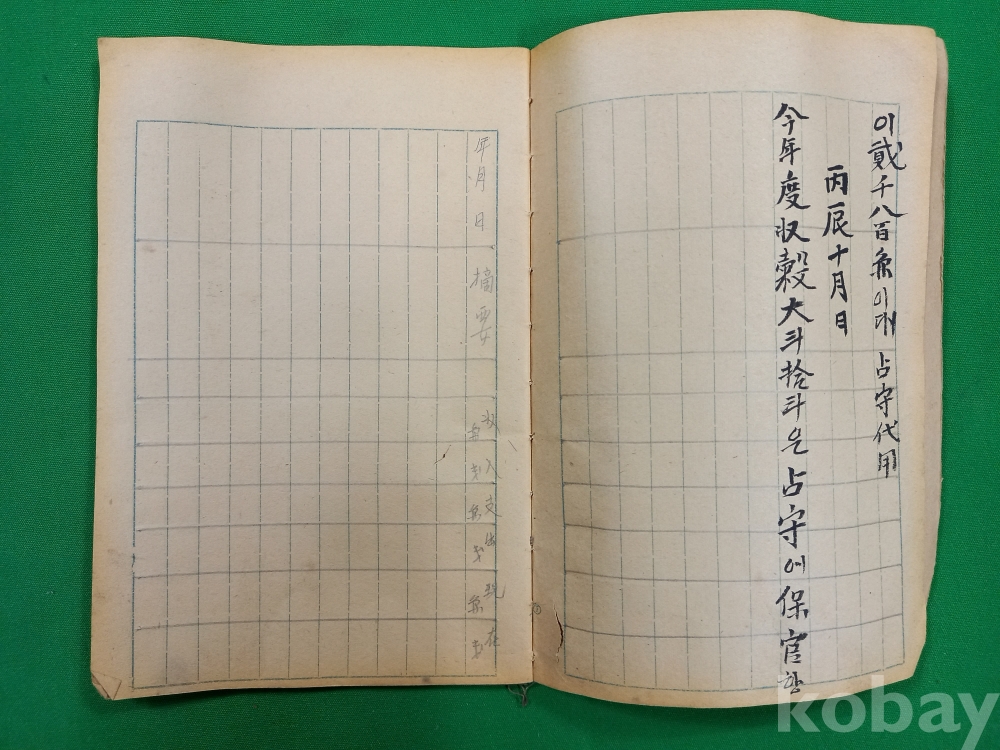 이貳千八百魚이대 占守代用
丙辰十月日
今年度収穀大斗拾斗은占守에保官함
年月日 摘要 収入 支出 現在
kobay